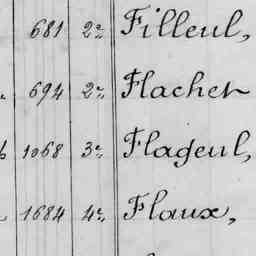 681 2e Filleul,
694 2e Flacher
1068 3e Flageul,
1684 4e Flaux,